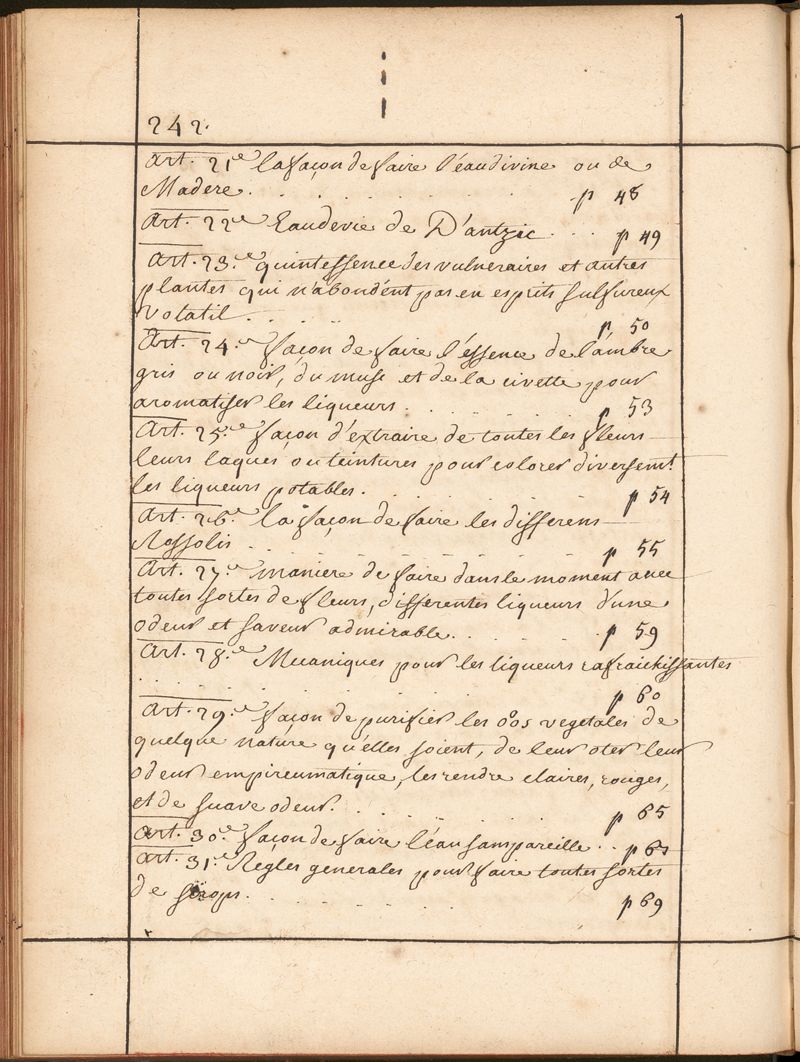 242.
Art. 21.e la façon de faire l'eau divine ou de
Madere. . . . . . . . . . . p 48
Art. 22.e Eaudevie de D'antzic . . . p 49
Art. 23.e quintessence des vulneraires et autres
plantes qui n'abondent pas en esprits sulfureux
volatil . . . . p. 50
Art. 24.e façon de faire l'essence de l'ambre
gris ou noir, du musc et de la civette pour
aromatiser les liqueurs . . . . . . p 53
Art. 25.e façon d'extraire de toutes les fleurs
leurs laques ou teintures pour colorer diversemt.
les liqueurs potables. . . . . . . p 54
Art. 26.e la façon de faire les differens
Rossolis . . . . . . . . p 55
Art. 27.e maniere de faire dans le moment avec
toutes sortes de fleurs, differentes liqueurs d'une
odeur et saveur admirable. . . . . . p 59
Art. 28.e Mecaniques pour les liqueurs rafraichissantes
. . . . . . . . . . . . p 60
Art. 29.e façon de purifier les oos vegetales de
quelque nature qu'elles soient, de leur oter leur
odeur empireumatique, les rendre claires, rouges,
et de suave odeur. . . . . . . p 65
Art. 30.e façon de faire l'eau sampareille . . p 67
Art. 31.e Regles generales pour faire toutes sortes
de sirops. . . . . . . . p 69